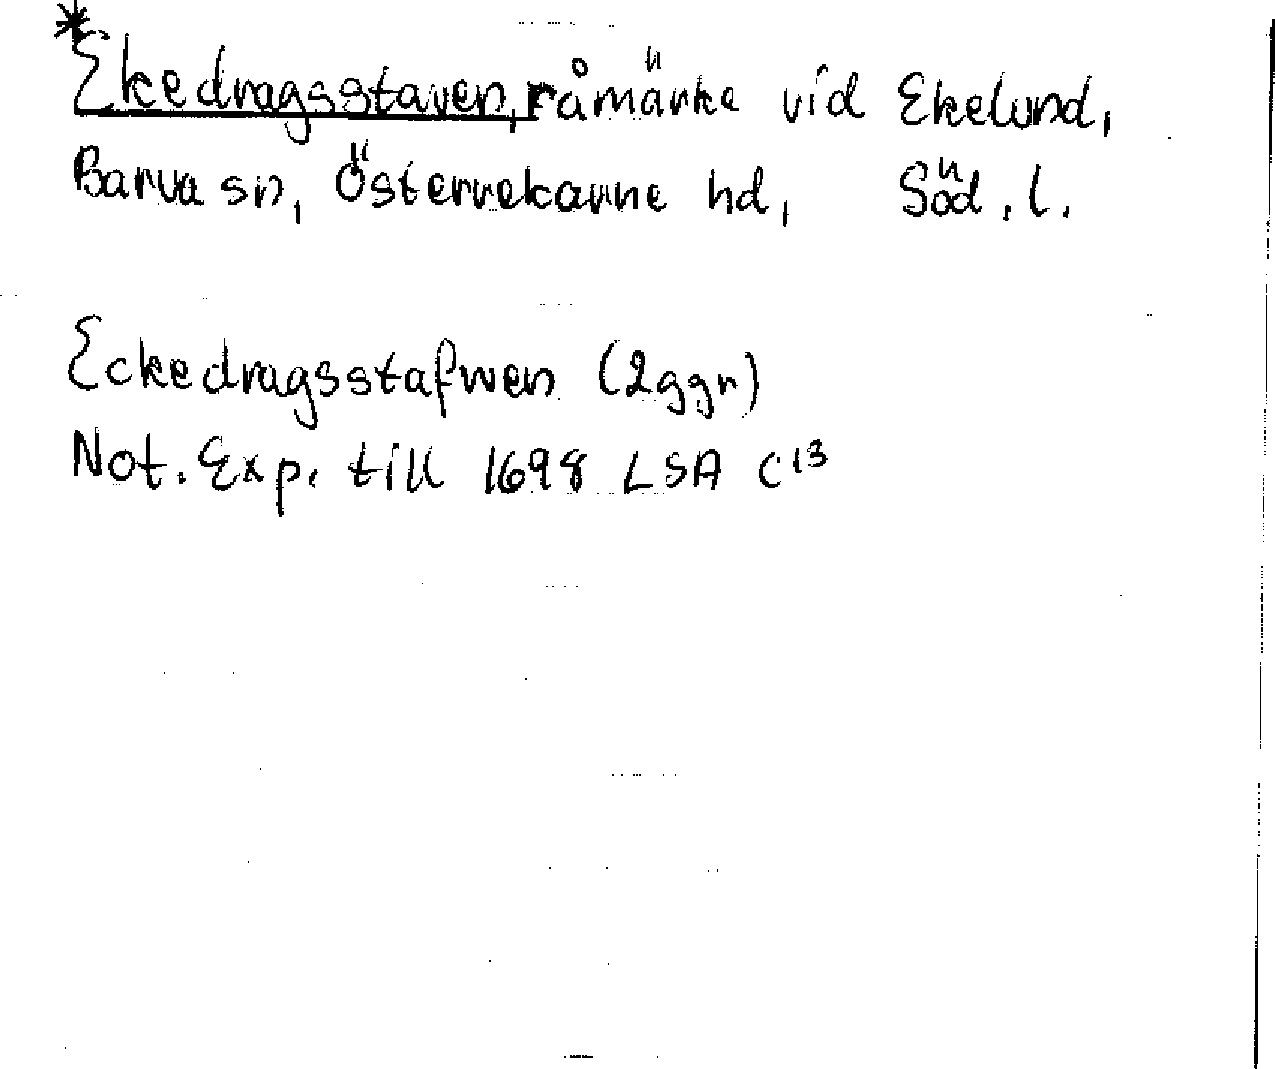 *Ekedragsstaven, råmärke vid Ekelund,
Barva sn, Österrekarne hd, Söd. l.
Eckedragsstafwen (2ggr)
Not. Exp. till 1698 LSA C13